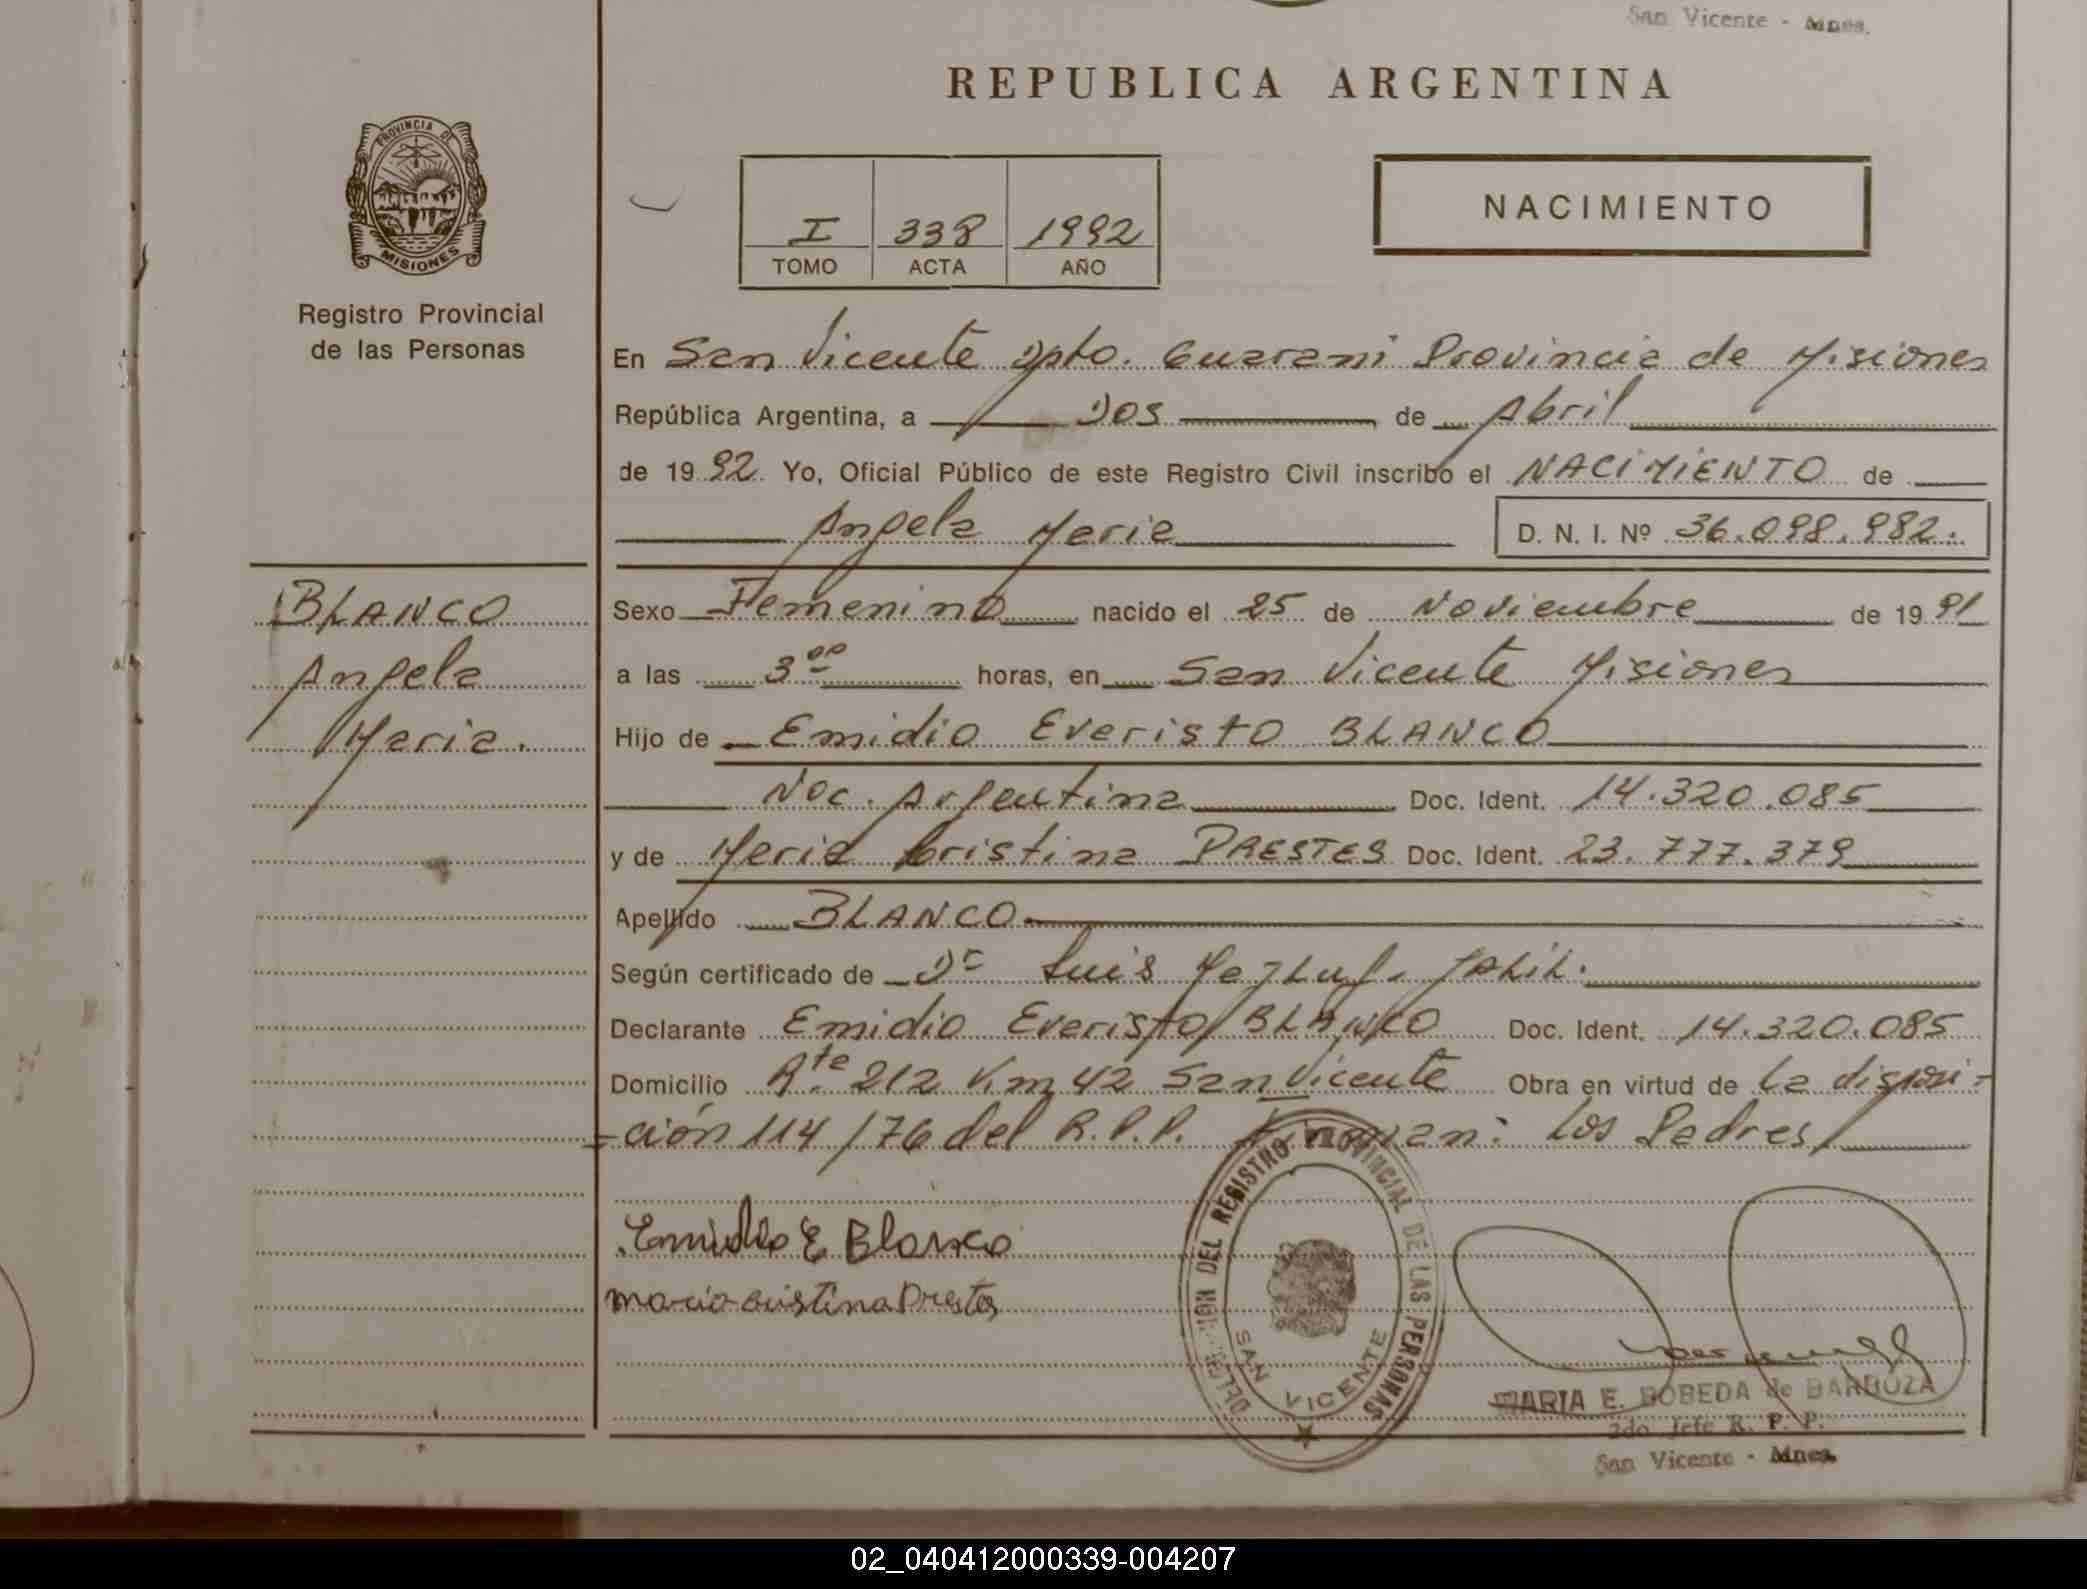 San Vicente - Mnes.
REPUBLICA ARGENTINA
PROVINCIA DE
MISIONES
Registro Provincial
de las Personas
I 338 1992
TOMO ACTA AÑO
NACIMIENTO
En San Vicente Dpto. Guarani Provincia de Misiones
República Argentina, a Dos de Abril
de 1992. Yo, Oficial Público de este Registro Civil inscribo el NACIMIENTO de
Angela Maria
D. N. I. Nº 36.098.982.
BLANCO
Angela
Maria.
Sexo Femenino nacido el 25 de Noviembre de 1991
a las 3 00 horas, en San Vicente Misiones
Hijo de Emidio Everisto BLANCO
Nac. Argentina Doc. Ident. 14.320.085
y de Maria Cristina PRESTES Doc. Ident. 23.777.379
Apellido BLANCO
Según certificado de Dr Luis JALIL.
Declarante Emidio Everisto BLANCO Doc. Ident. 14.320.085
Domicilio Rta. 212 Km 42 San Vicente Obra en virtud de La disposi-
-ción 114/76 del R.P.P. Firman: Los Padres
Emidio E Blanco
maria cristina Prestes
DELEGACION DEL REGISTRO PROVINCIAL DE LAS PERSONAS
SAN VICENTE
MARIA E. BOBEDA de BARBOZA
2do Jefe R. P. P.
San Vicente - Mnes.
02_040412000339-004207